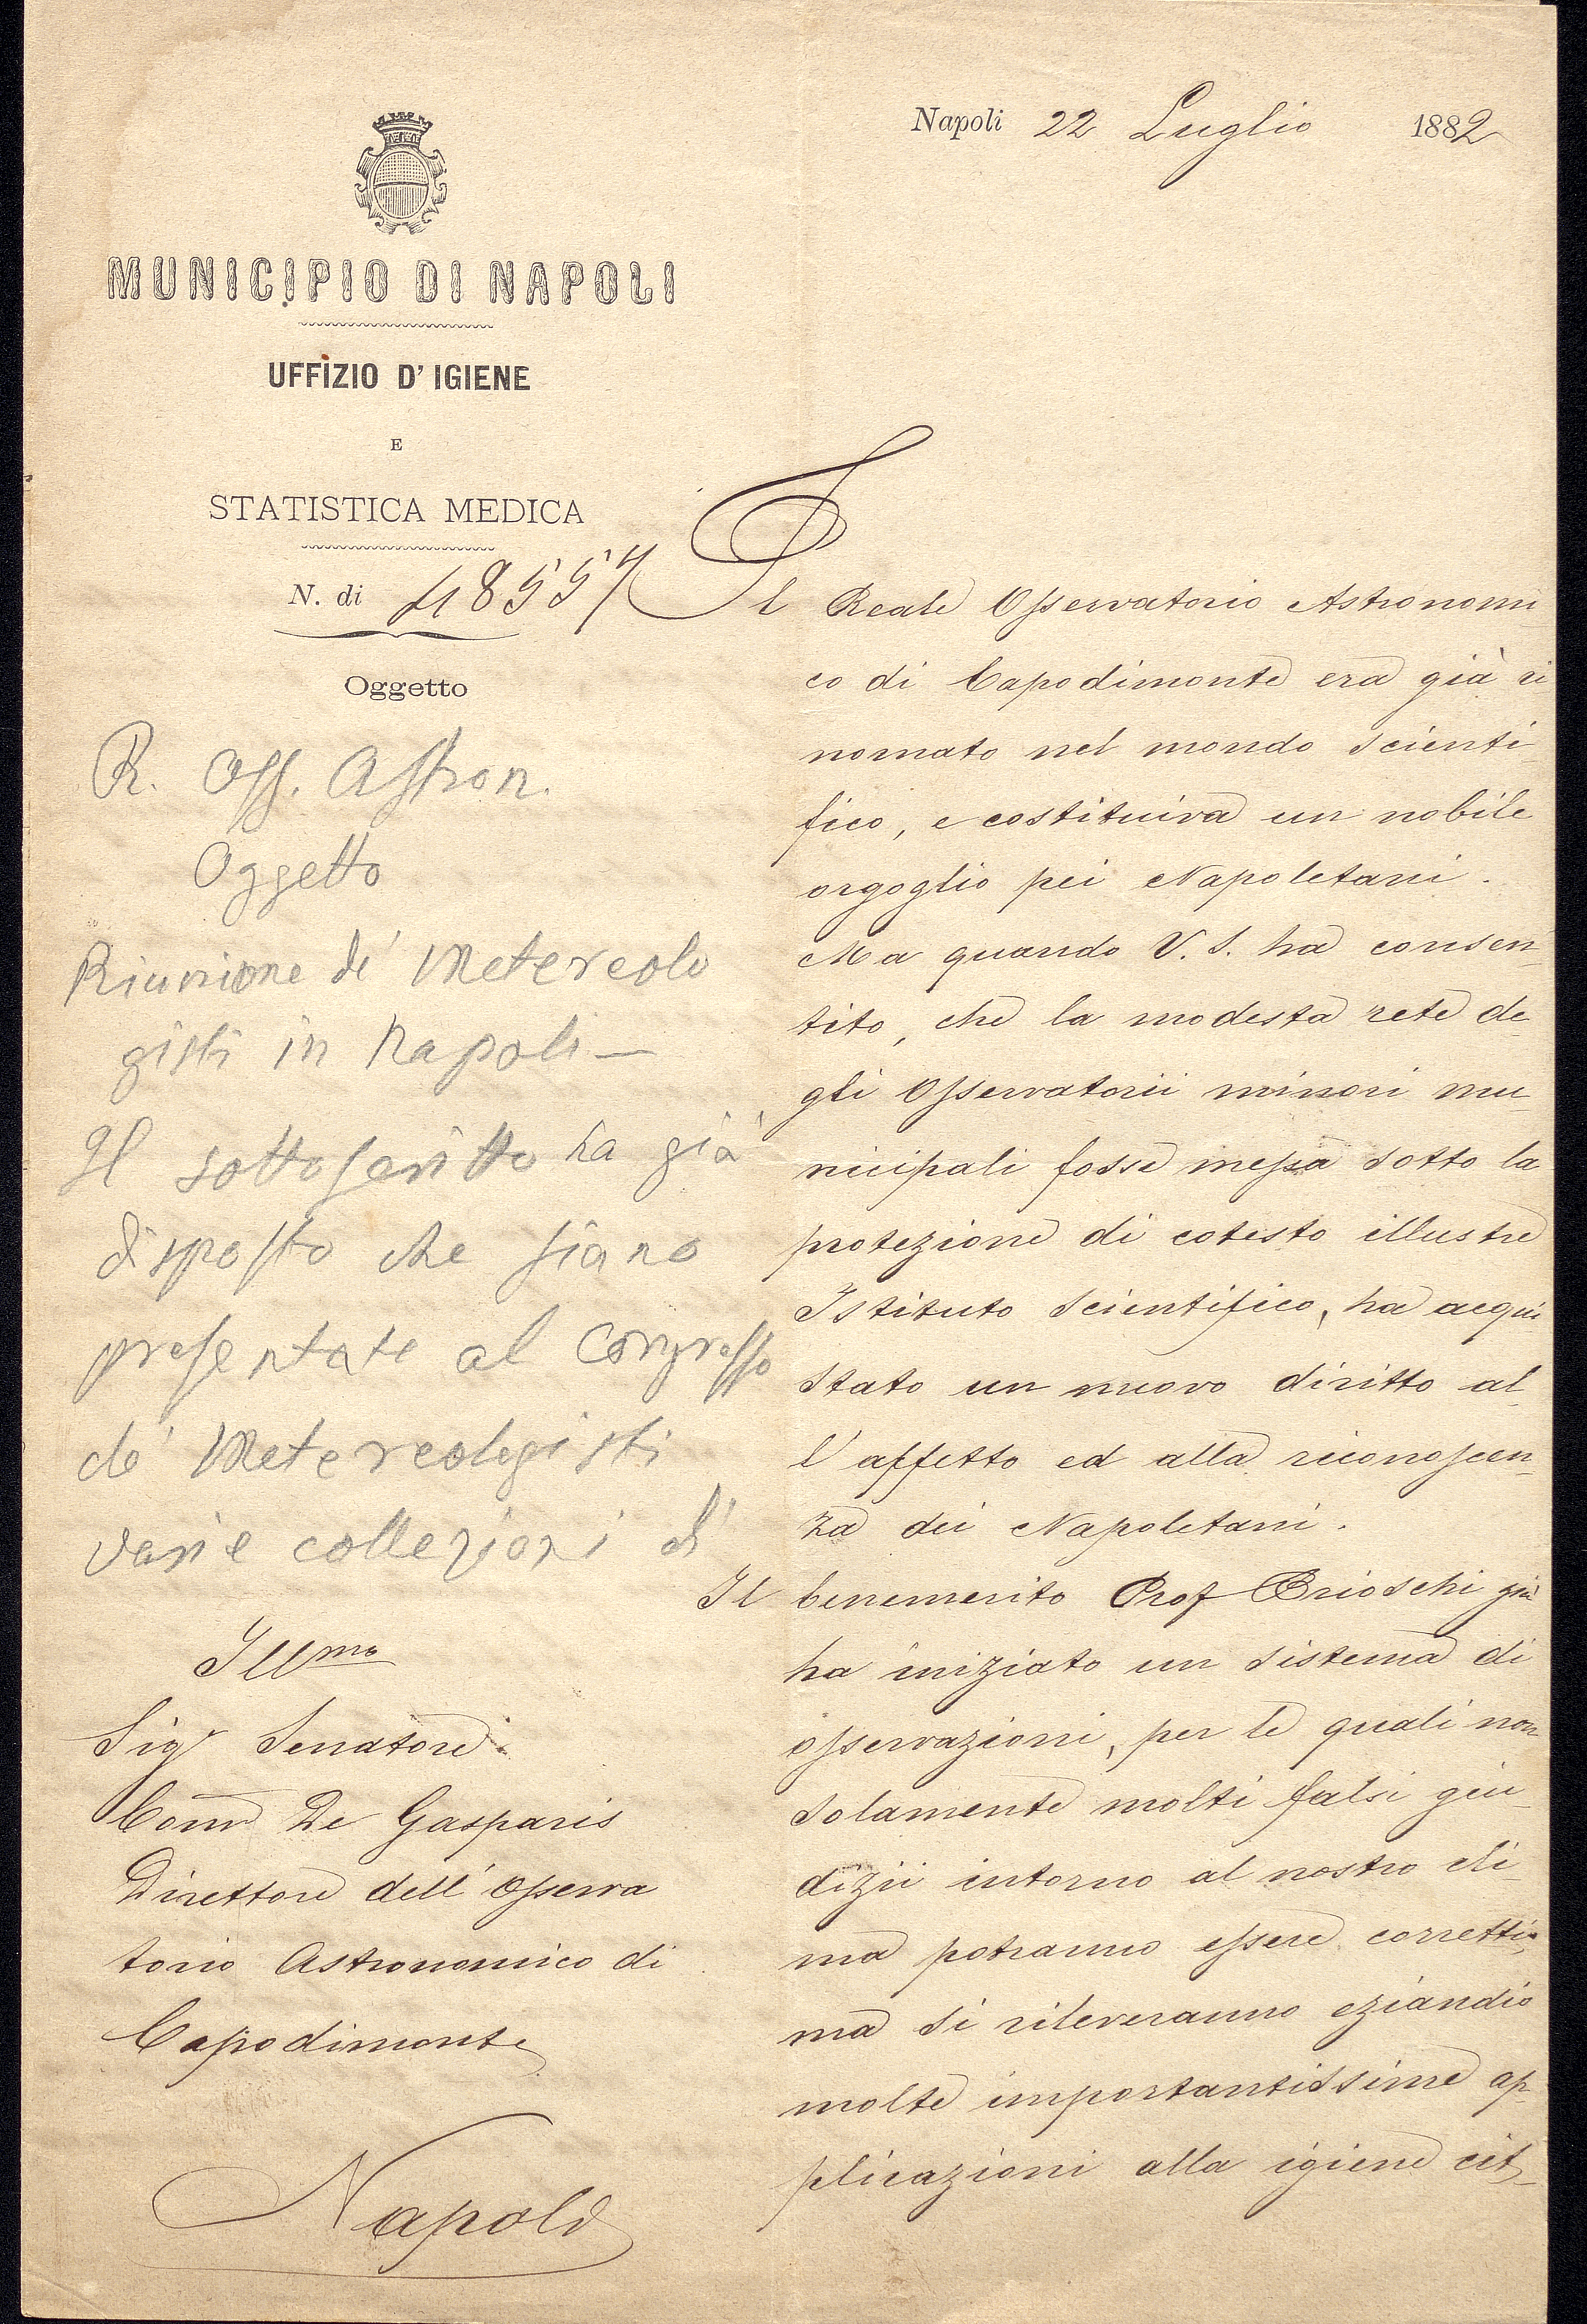 MUNICIPIO DI NAPOLI
UFFIZIO D' IGIENE
E
STATISTICA MEDICA
N. di 48557
Oggetto
R. Oss. Astron.
Oggetto
Riunione de' Metereolo
gisti in Napoli —
Il sottoscritto ha già
disposto che siano
presentate al Congresso
de' Metereologisti
varie collezioni di
Illmo
Sigr Senatore
Comm De Gasparis
Direttore dell' Osserva
torio Astronomico di
Capodimonte
Napoli
Napoli 22 Luglio 1882
Il Reale Osservatorio Astronomi
co di Capodimonte era già ri
nomato nel mondo scienti
fico, e costituiva un nobile
orgoglio pei Napoletani.
Ma quando V. S. ha consen
tito, che la modesta rete de
gli Osservatorii minori mu
nicipali fosse messa sotto la
protezione di cotesto illustre
Istituto scientifico, ha acqui
stato un nuovo diritto al
l'affetto ed alla riconoscen
za dei Napoletani.
Il benemerito Prof Brioschi già
ha iniziato un sistema di
osservazioni, per le quali non
solamente molti falsi giu
dizii intorno al nostro cli
ma potranno essere corretti,
ma si rileveranno eziandio
molte importantissime ap
plicazioni alla igiene cit